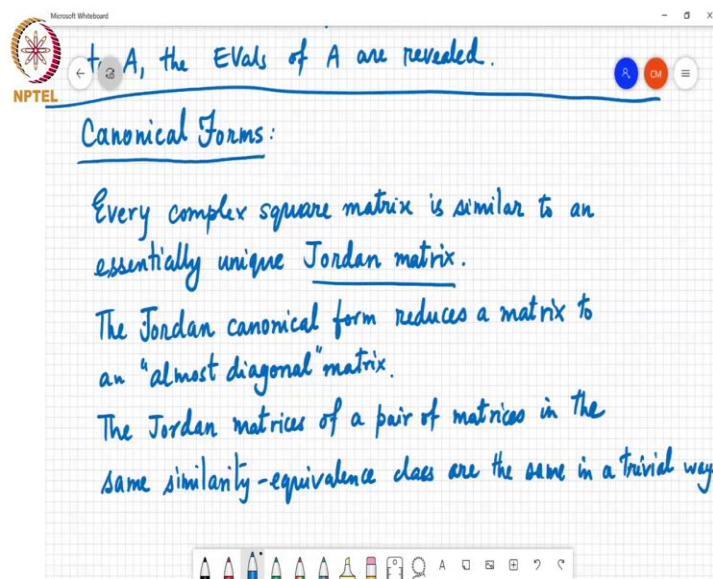 Microsoft Whiteboard
t A, the EVals of A are revealed.
CM
NPTEL
Canonical Forms:
Every complex square matrix is similar to an
essentially unique Jordan matrix.
The Jordan canonical form reduces a matrix to
an "almost diagonal" matrix.
The Jordan matrices of a pair of matrices in the
same similarity-equivalence class are the same in a trivial way
A